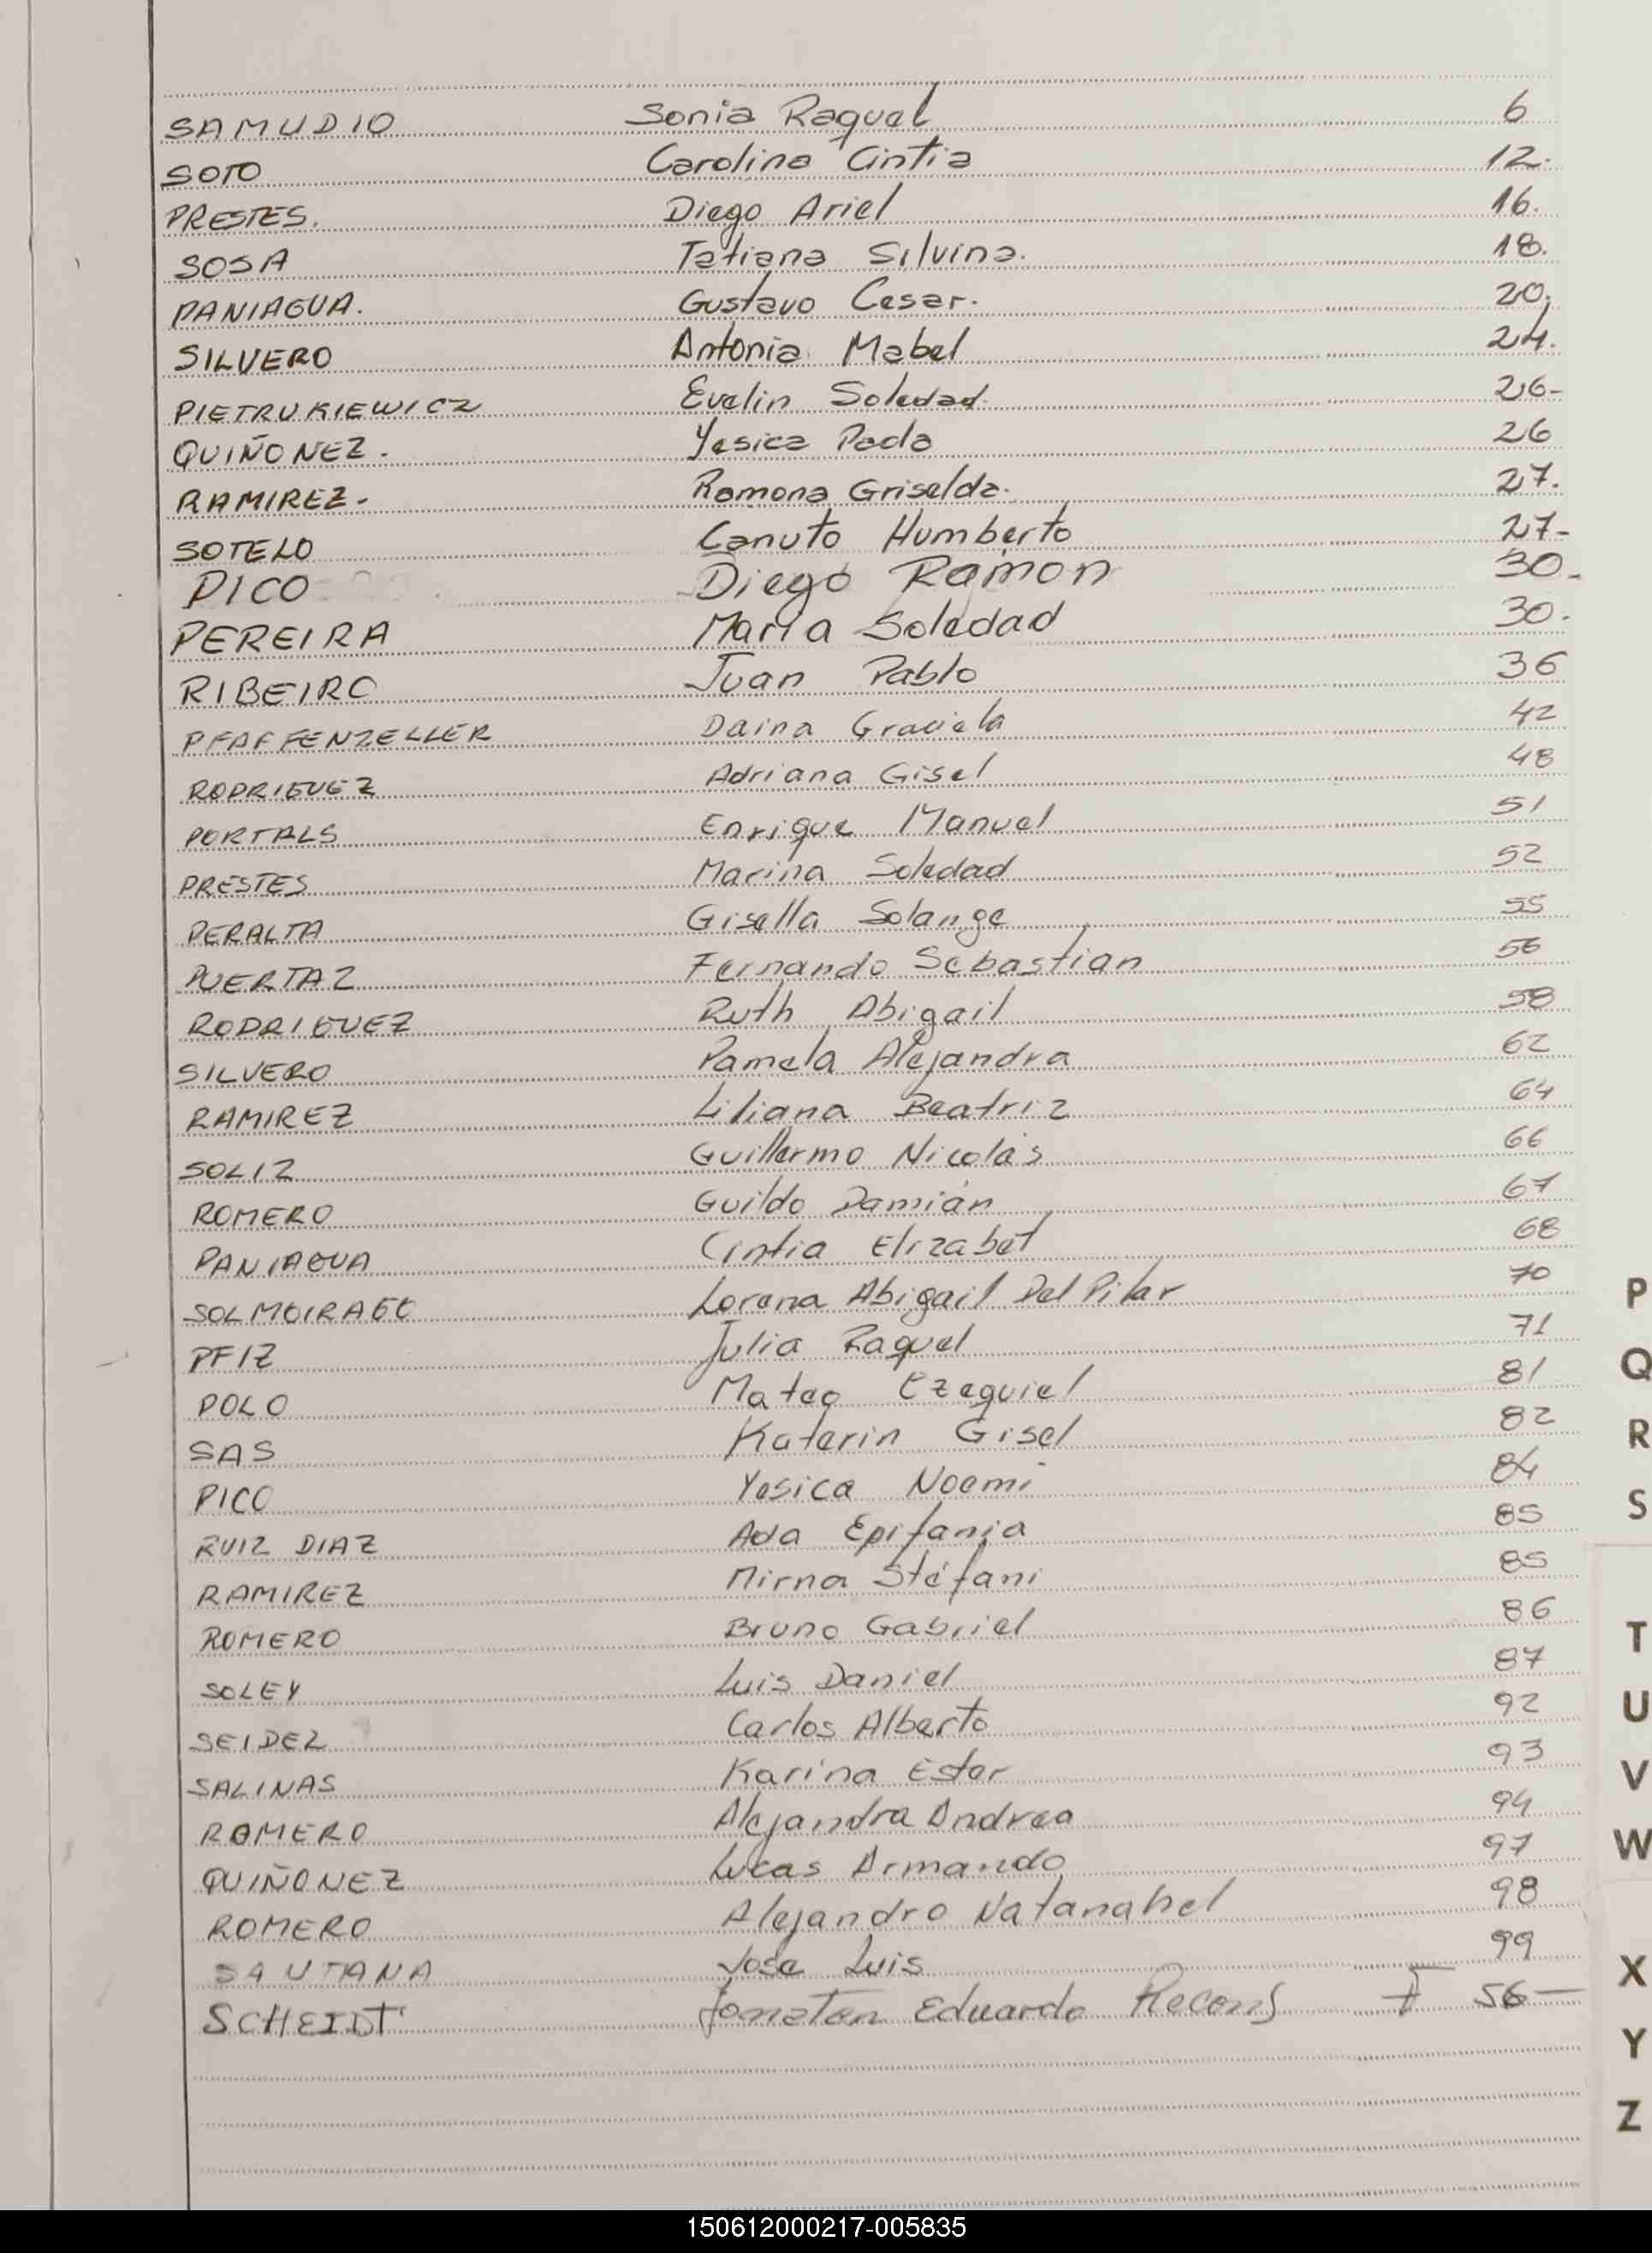 SAMUDIO Sonia Raquel 6
SOTO Carolina Cintia 12.
PRESTES. Diego Ariel 16.
SOSA Tatiana Silvina. 18.
PANIAGUA. Gustavo Cesar. 20.
SILVERO Antonia Mabel 24.
PIETRUKIEWICZ Evelin Soledad. 26-
QUIÑONEZ. Yesica Paola 26
RAMIREZ. Ramona Griselda. 27.
SOTELO Canuto Humberto 27-
PICO Diego Ramon 30-
PEREIRA Maria Soledad 30.
RIBEIRO Juan Pablo 36
PFAFFENZELLER Daina Graciela 42
RODRIGUEZ Adriana Gisel 48
PORTALS Enrique Manuel 51
PRESTES Marina Soledad 52
PERALTA Gisella Solange 55
PUERTAZ Fernando Sebastian 56
RODRIGUEZ Ruth Abigail 58
SILVERO Pamela Alejandra 62
RAMIREZ Liliana Beatriz 64
SOLIZ Guillermo Nicolás 66
ROMERO Guildo Damián 67
PANIAGUA Cintia Elizabet 68
SOLMOIRAGO Lorena Abigail Del Pilar 70
PFIZ Julia Raquel 71
POLO Mateo Ezequiel 81
SAS Katerin Gisel 82
PICO Yesica Noemi 84
RUIZ DIAZ Ada Epifania 85
RAMIREZ Mirna Stéfani 85
ROMERO Bruno Gabriel 86
SOLEY Luis Daniel 87
SEIDEL Carlos Alberto 92
SALINAS Karina Ester 93
ROMERO Alejandra Andrea 94
QUIÑONEZ Lucas Armando 97
ROMERO Alejandro Natanahel 98
SANTANA Jose Luis 99
SCHEIDT Jonatan Eduardo 56-
P
Q
R
S
T
U
V
W
X
Y
Z
150612000217-005835